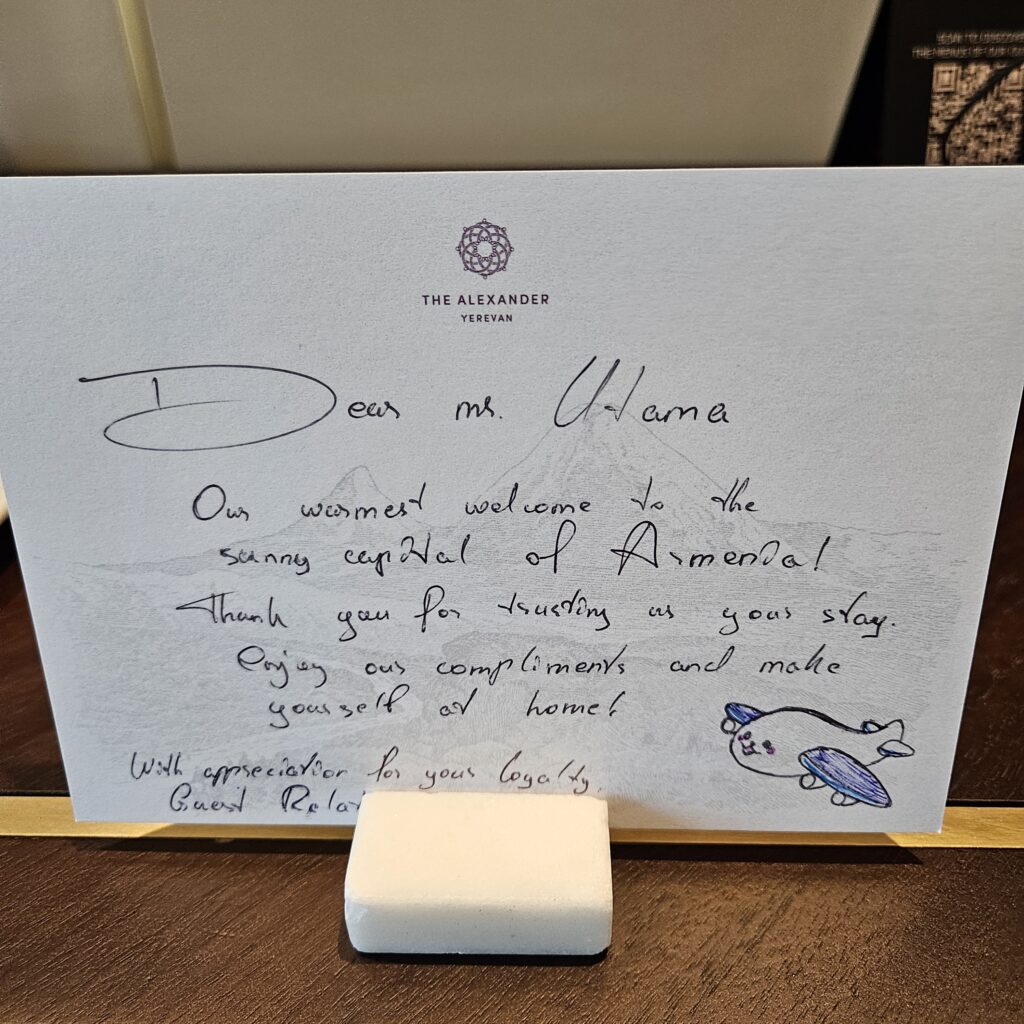 THE ALEXANDER
YEREVAN
Dear mr. Utama
Our warmest welcome to the
sunny capital of Armenia!
Thank you for trusting us your stay.
Enjoy our compliments and make
yourself at home!
With appreciation for your loyalty,
Guest